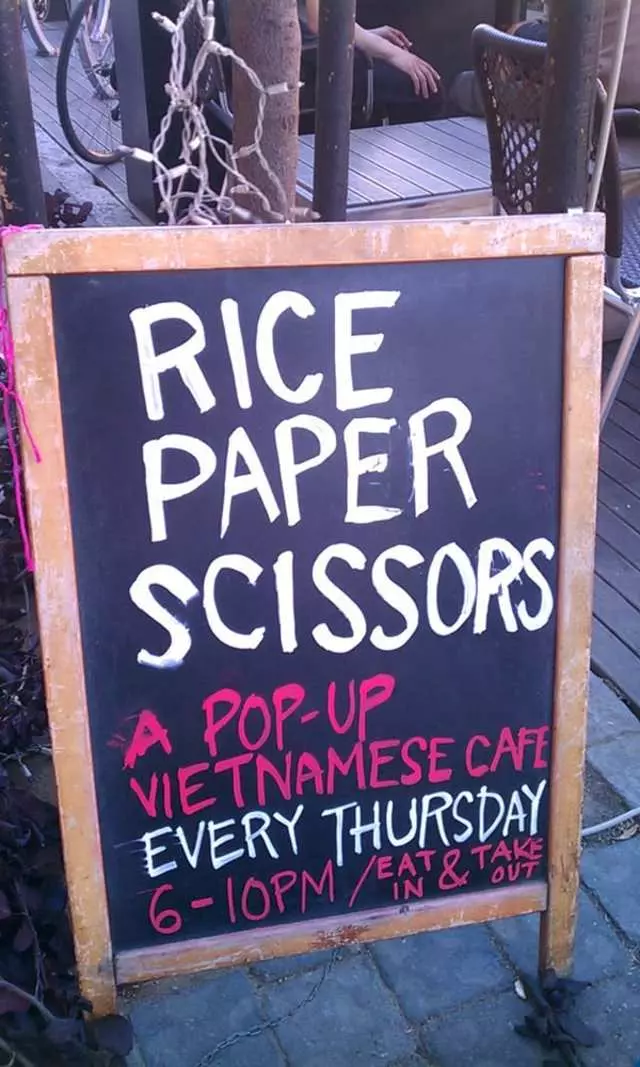 RICE
PAPER
SCISSORS
A POP-UP
VIETNAMESE CAFE
EVERY THURSDAY
6-10PM / EAT IN & TAKE OUT